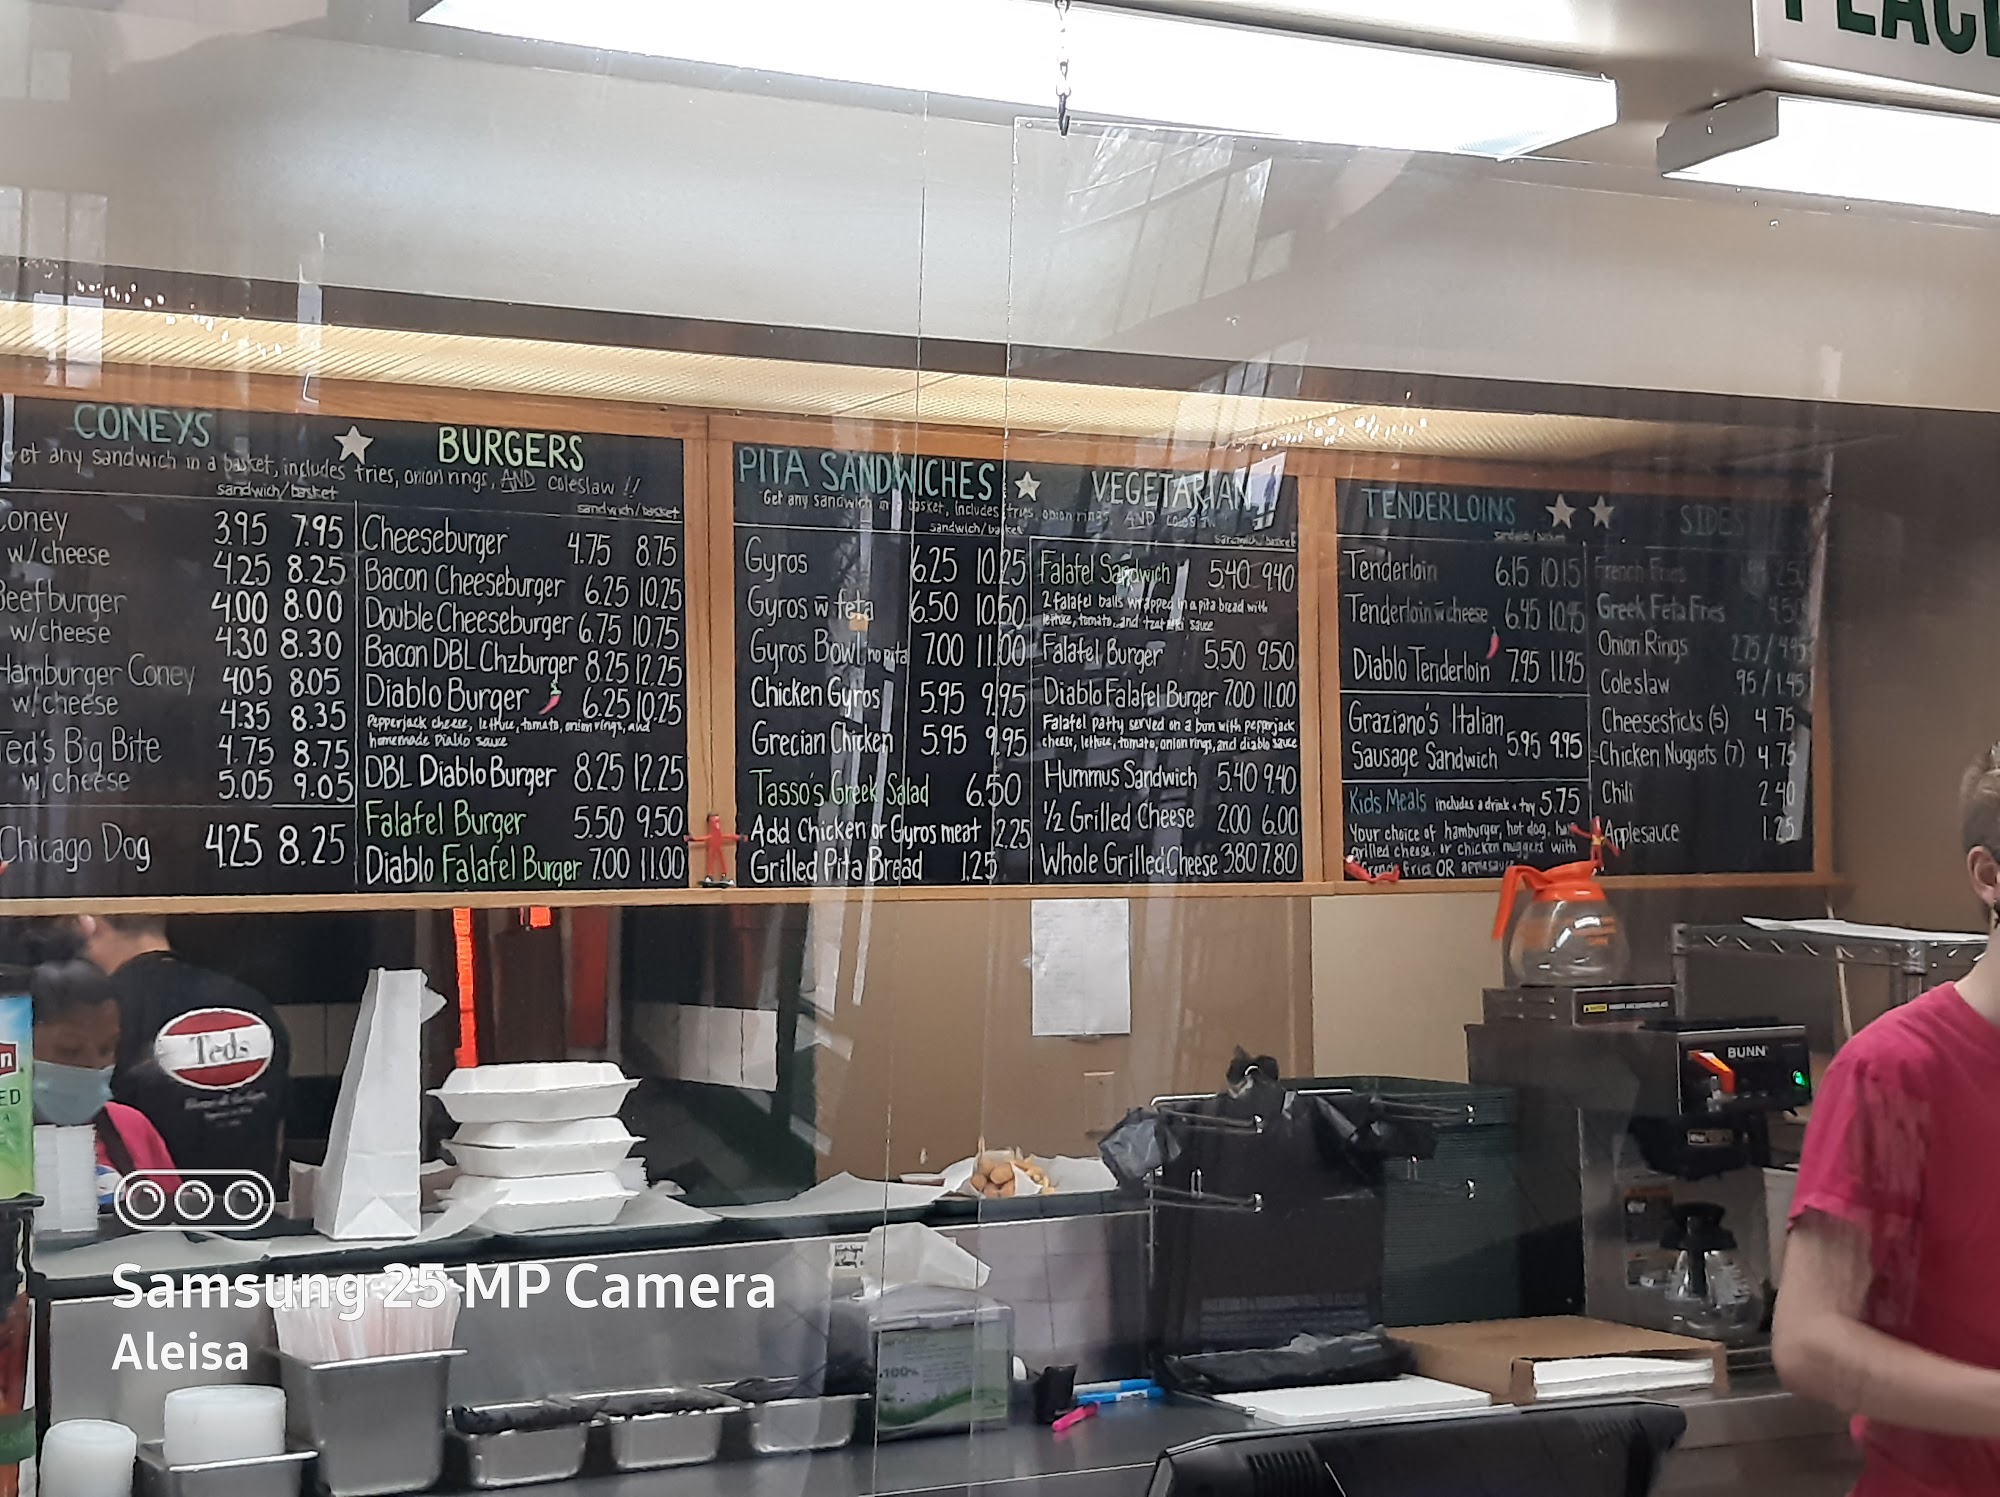 CONEYS
BURGERS
Get any sandwich in a basket, includes fries, onion rings, AND coleslaw !!
sandwich/basket
Coney 3.95 7.95
w/cheese 4.25 8.25
Beefburger 4.00 8.00
w/cheese 4.30 8.30
Hamburger Coney 4.05 8.05
w/cheese 4.35 8.35
Ted's Big Bite 4.75 8.75
w/cheese 5.05 9.05
Chicago Dog 4.25 8.25
sandwich/basket
Cheeseburger 4.75 8.75
Bacon Cheeseburger 6.25 10.25
Double Cheeseburger 6.75 10.75
Bacon DBL Chzburger 8.25 12.25
Diablo Burger 6.25 10.25
Pepperjack cheese, lettuce, tomato, onion rings, and
homemade Diablo sauce
DBL Diablo Burger 8.25 12.25
Falafel Burger 5.50 9.50
Diablo Falafel Burger 7.00 11.00
PITA SANDWICHES
VEGETARIAN
Get any sandwich in a basket, includes fries, onion rings, AND
sandwich/basket
Gyros 6.25 10.25
Gyros w feta 6.50 10.50
Gyros Bowl no pita 7.00 11.00
Chicken Gyros 5.95 9.95
Grecian Chicken 5.95 9.95
Tasso's Greek Salad 6.50
Add Chicken or Gyros meat 2.25
Grilled Pita Bread 1.25
sandwich/basket
Falafel Sandwich 5.40 9.40
2 falafel balls wrapped in a pita bread with
lettuce, tomato, and tzatziki sauce
Falafel Burger 5.50 9.50
Diablo Falafel Burger 7.00 11.00
Falafel patty served on a bun with pepperjack
cheese, lettuce, tomato, onion rings, and diablo sauce
Hummus Sandwich 5.40 9.40
1/2 Grilled Cheese 2.00 6.00
Whole Grilled Cheese 3.80 7.80
TENDERLOINS
SIDES
Tenderloin 6.15 10.15
Tenderloin w cheese 6.45 10.45
Diablo Tenderloin 7.95 11.95
Graziano's Italian
Sausage Sandwich 5.95 9.95
Kids Meals includes a drink + toy 5.75
Your choice of hamburger, hot dog,
grilled cheese, or chicken nuggets with
French Fries OR applesauce
French Fries
Greek Feta Fries 4.50
Onion Rings 2.75 / 4.95
Coleslaw .95 / 1.45
Cheesesticks (5) 4.75
Chicken Nuggets (7) 4.75
Chili 2.40
Applesauce 1.25
Teds
BUNN
100%
Samsung 25 MP Camera
Aleisa